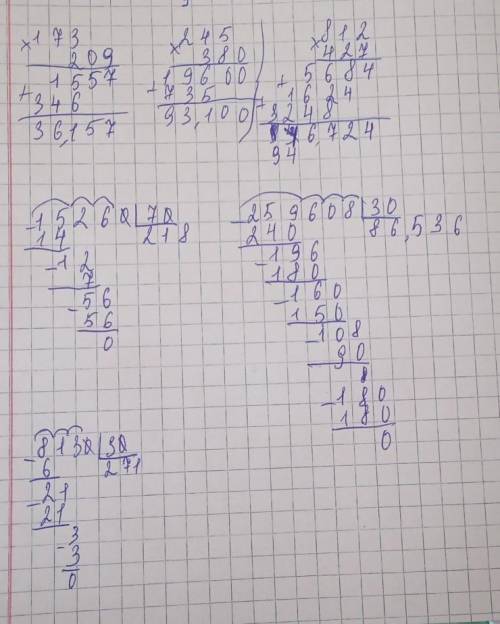 ×173
209
1557
+
346
36,157
×245
380
19600
+
735
93,100
×812
427
5684
+
1624
+
3248
6,724
94
-15260 | 70
14
218
-12
7
-56
56
0
-259608 | 30
240
86,536
-196
180
-160
150
-108
90
8
-180
180
0
-8130 | 30
6
271
-21
21
-3
3
0